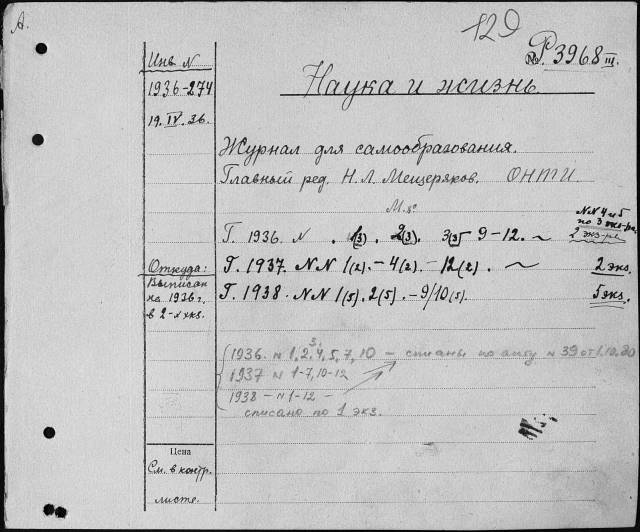 А.
129
Р. 3968 III.
Инв N
1936-274
19.IV.36.
Наука и жизнь.
Журнал для самообразования.
Главный ред. Н. Л. Мещеряков. ОНТИ.
М. 8°
Г. 1936. N 1(3). 2(3). 3(3) 9-12. ~
NN 4 и 5
по 3 экз-ра
2 экз-ра
Откуда:
Выписан
на 1936 г.
в 2-х экз.
Г. 1937. NN 1(2). - 4(2). - 12(2). ~ 2 экз.
Г. 1938. NN 1(5). 2(5). - 9/10(5). 5 экз.
1936. N 1, 2, 3, 4, 5, 7, 10 — списаны по акту N 39 от 1.10.
1937 N 1-7, 10-12
1938 - N 1-12 -
списано по 1 экз.
Цена
См. в контр.
листе.